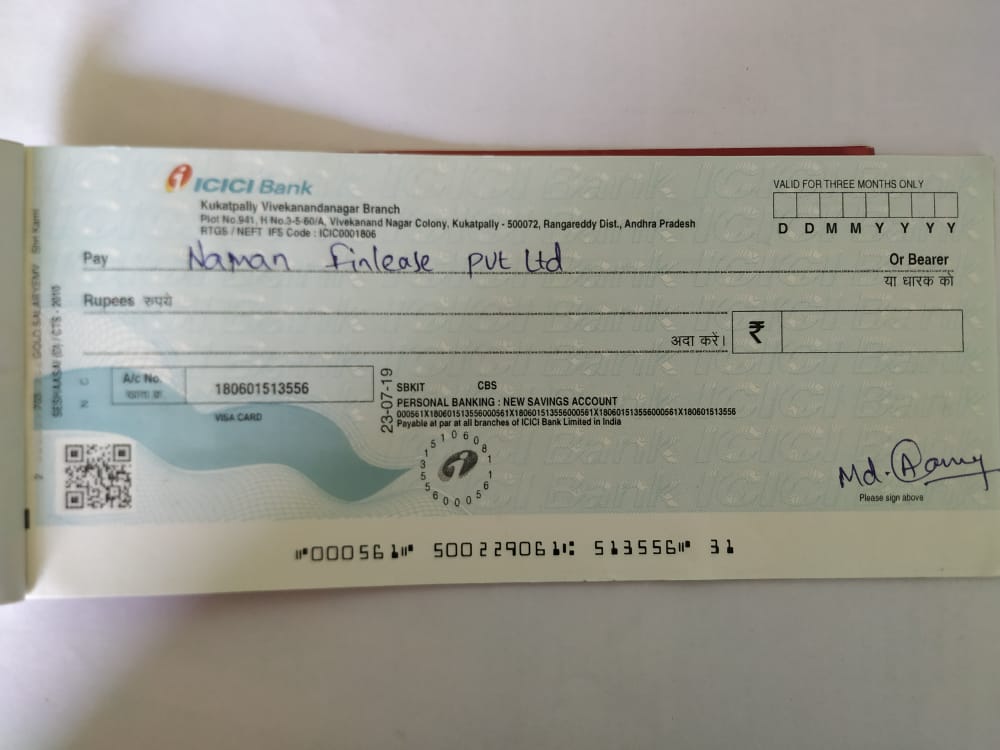 ICICI Bank
Kukatpally Vivekanandanagar Branch
Plot No.941, H No.3-5-60/A, Vivekanand Nagar Colony, Kukatpally - 500072, Rangareddy Dist., Andhra Pradesh
RTGS / NEFT IFS Code : ICIC0001806
VALID FOR THREE MONTHS ONLY
D D M M Y Y Y Y
Pay Naman Finlease Pvt Ltd Or Bearer
या धारक को
Rupees रुपये
अदा करें। ₹
A/c No. 180601513556
VISA CARD
23-07-19
SBKIT CBS
PERSONAL BANKING : NEW SAVINGS ACCOUNT
000561X180601513556000561X180601513556000561X180601513556000561X180601513556
Payable at par at all branches of ICICI Bank Limited in India
Md.
Please sign above
⑈000561⑈ 500229061⑆ 513556⑈ 31